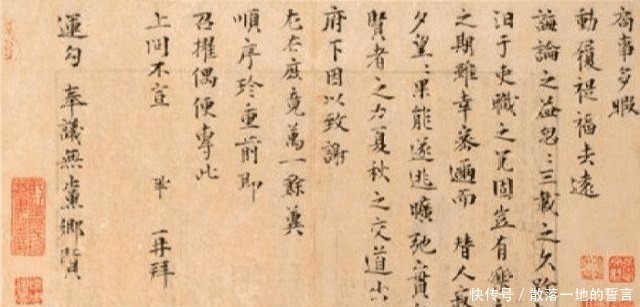 局事多暇
動履禔福去遠
議論之益忽〻三載之久
汩于吏職之冗固豈有
之期雖幸密邇而 替人
夕望〻果能遂逃曠弛實
賢者之力夏秋之交道出
府下因以致謝
左右庶竟萬一餘冀
順序珍重前即
召擢偶便專此
上問不宣 鞏 再拜
運勾 奉議無黨鄉賢
快传号 / 散落一地的誓言